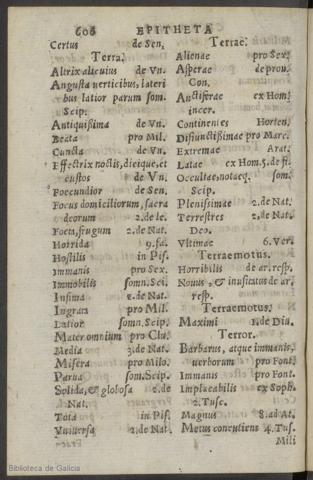 606 EPITHETA
Certus de Sen.
Terra.
Altrix alicuius de Vn.
Angusta verticibus, lateri
bus latior parum som.
Scip.
Antiquissima de Vn.
Beata pro Mil.
Cuncta de Vn.
Effectrix noctis, dieique, et
custos de Vn.
Foecundior de Sen.
Focus domiciliorum, sacra
deorum 2. de le.
Foeta, frugum 2. de Nat.
Horrida 9. fa.
Hostilis in Pis.
Immanis pro Sex.
Immobilis somn. Sci.
Infima 2. de Nat.
Ingrata pro Mil.
Latior somn. Scip.
Mater omnium pro Clu.
Media 3. de Nat.
Misera pro Milo.
Parua som. Scip.
Solida, & globosa 2. de
Nat.
Tota in Pis.
Vniuersa 2. de Nat.
Terrae.
Alienae pro Sex.
Asperae de prou.
Con.
Auctiferae ex Hom.
incer.
Continentes Horten.
Disiunctissimae pro Marc.
Extremae Arat.
Latae ex Hom. 5. de fi.
Occultae, notaeq. som.
Scip.
Plenissimae 2. de Nat.
Terrestres 2. de Nat.
Deo.
Vltimae 6. Ver.
Terraemotus.
Horribilis de ar. resp.
Nouus, & inusitatus de ar.
resp.
Terraemotus.
Maximi 1. de Diu.
Terror.
Barbarus, atque immanis,
verborum pro Font.
Immanis pro Font.
Implacabilis ex Soph.
2. Tusc.
Magnus 8. ad At.
Metus concutiens 4. Tus.
Mili
Biblioteca de Galicia